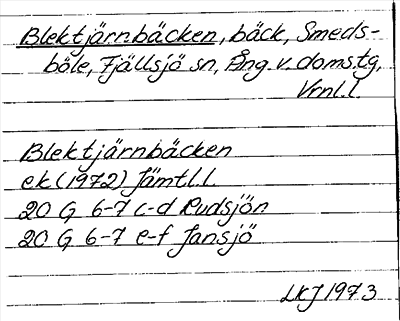 Blektjärnbäcken, bäck, Smeds-
böle, Fjällsjö sn, Ång. v. domstg,
Vrnl.l.
Blektjärnbäcken
ek (1972) Jämtl.l.
20 G 6-7 c-d Rudsjön
20 G 6-7 e-f Jansjö
LKJ 1973